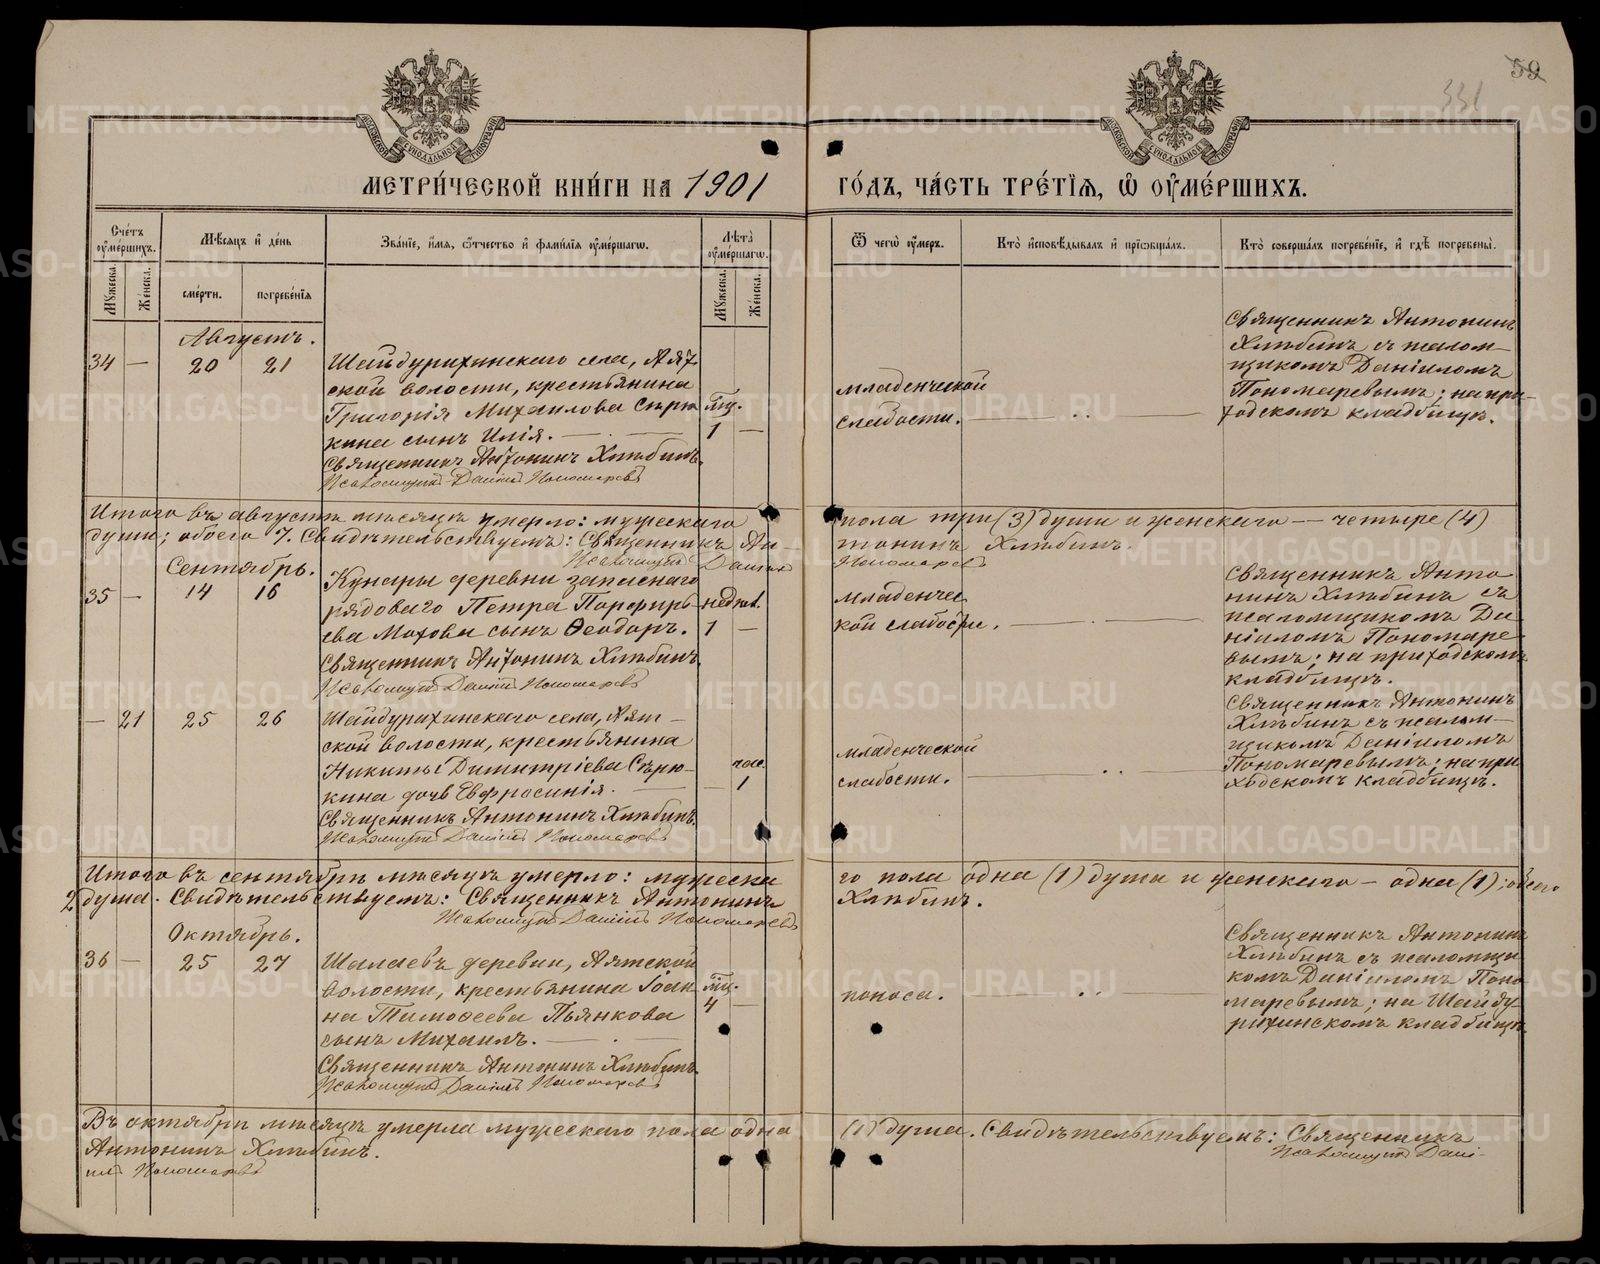 59
331
МЕТРИ́ЧЕСКОЙ КНИ́ГИ НА 1901 ГО́ДЪ, ЧА́СТЬ ТРЕ́ТІЯ, Ѽ ОУМЕ́РШИХЪ.
Сче́тъ оуме́ршихъ.
Мꙋ́жеска.
Же́нска.
Мѣ́сяцъ и де́нь
сме́рти.
погребе́нія
Зва́ніе, и́мя, ѻ́тчество и фами́лія оуме́ршагѡ.
Лѣ́та оуме́ршагѡ.
Мꙋ́жеска.
Же́нска.
Ѿ чегѡ̀ оу́меръ.
Кто̀ исповѣ́дывалъ и пріѡбща́лъ.
Кто̀ соверша́лъ погребе́ніе, и гдѣ̀ погребены̀.
Августъ.
34 — 20 21
Шайдурихинскаго села, Аят-
ской волости, крестьянина
Григорія Михаилова Сѣрю
кина сынъ Илія.
Священникъ Антонинъ Хлѣбинъ.
Псаломщикъ Даніилъ Пономаревъ
мц.
1 —
младенческой
слабости.
Священникъ Антонинъ
Хлѣбинъ съ псалом-
щикомъ Даніиломъ
Пономаревымъ; на при-
ходскомъ кладбищѣ.
Итого въ августѣ мѣсяцѣ умерло: мужескаго пола три (3) души и женскаго — четыре (4)
души; обоего 7. Свидѣтельствуемъ: Священникъ Ан- тонинъ Хлѣбинъ.
Псаломщикъ Даніилъ Пономаревъ
Сентябрь.
35 — 14 16
Кунары деревни запаснаго
рядоваго Петра Порфирь-
ева Мохова сынъ Ѳеодоръ.
Священникъ Антонинъ Хлѣбинъ.
Псаломщикъ Даніилъ Пономаревъ
1 —
младенчес
кой слабости.
Священникъ Анто
нинъ Хлѣбинъ съ
псаломщикомъ Да
ніиломъ Пономаре
вымъ; на приходскомъ
кладбищѣ.
— 21 25 26
Шайдурихинскаго села, Аят-
ской волости, крестьянина
Никиты Димитріева Сѣрю-
кина дочь Евфросинія.
Священникъ Антонинъ Хлѣбинъ.
Псаломщикъ Даніилъ Пономаревъ
час.
— 1
младенческой
слабости.
Священникъ Антонинъ
Хлѣбинъ съ псалом-
щикомъ Даніиломъ
Пономаревымъ; на при
ходскомъ кладбищѣ.
Итого въ сентябрѣ мѣсяцѣ умерло: мужеска го пола одна (1) душа и женскаго — одна (1); обоего
2 душа. Свидѣтельствуемъ: Священникъ Антонинъ Хлѣбинъ.
Псаломщикъ Даніилъ Пономаревъ
Октябрь.
36 — 25 27
Шалаевъ деревни, Аятской
волости, крестьянина Іоан
на Тимоѳеева Пьянкова
сынъ Михаилъ.
Священникъ Антонинъ Хлѣбинъ.
Псаломщикъ Даніилъ Пономаревъ
мц.
4 —
поноса.
Священникъ Антонинъ
Хлѣбинъ съ псаломщи
комъ Даніиломъ Поно
маревымъ; на Шайду
рихинскомъ кладбищѣ
Въ октябрѣ мѣсяцѣ умерла мужескаго пола одна (1) душа. Свидѣтельствуемъ: Священникъ
Антонинъ Хлѣбинъ.
Псаломщикъ Дані-
илъ Пономаревъ
METRIKI.GASO-URAL.RU